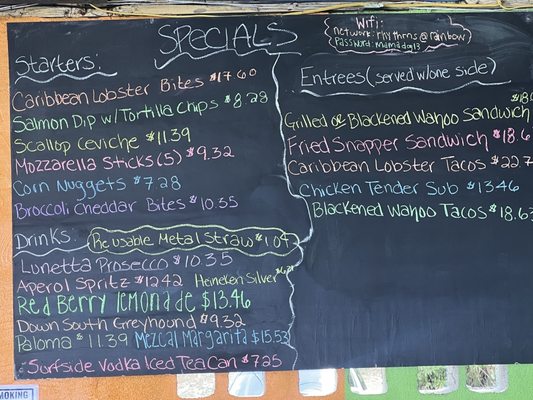 SPECIALS
Wifi:
network: rhythms@rainbow
Password: mamadog13
Starters:
Caribbean Lobster Bites $17.60
Salmon Dip w/Tortilla Chips $8.28
Scallop Ceviche $11.39
Mozzarella Sticks (5) $9.32
Corn Nuggets $7.28
Broccoli Cheddar Bites $10.35
Drinks: Reusable Metal Straw $1.04
Lunetta Prosecco $10.35
Aperol Spritz $12.42 Heineken Silver
Red Berry lemonade $13.46
Down South Greyhound $9.32
Paloma $11.39 Mezcal Margarita $15.53
Surfside Vodka Iced Tea Can $7.25
Entrees (served w/one side)
Grilled or Blackened Wahoo Sandwich $18.
Fried Snapper Sandwich $18.6
Caribbean Lobster Tacos $22.7
Chicken Tender Sub $13.46
Blackened Wahoo Tacos $18.63
SMOKING